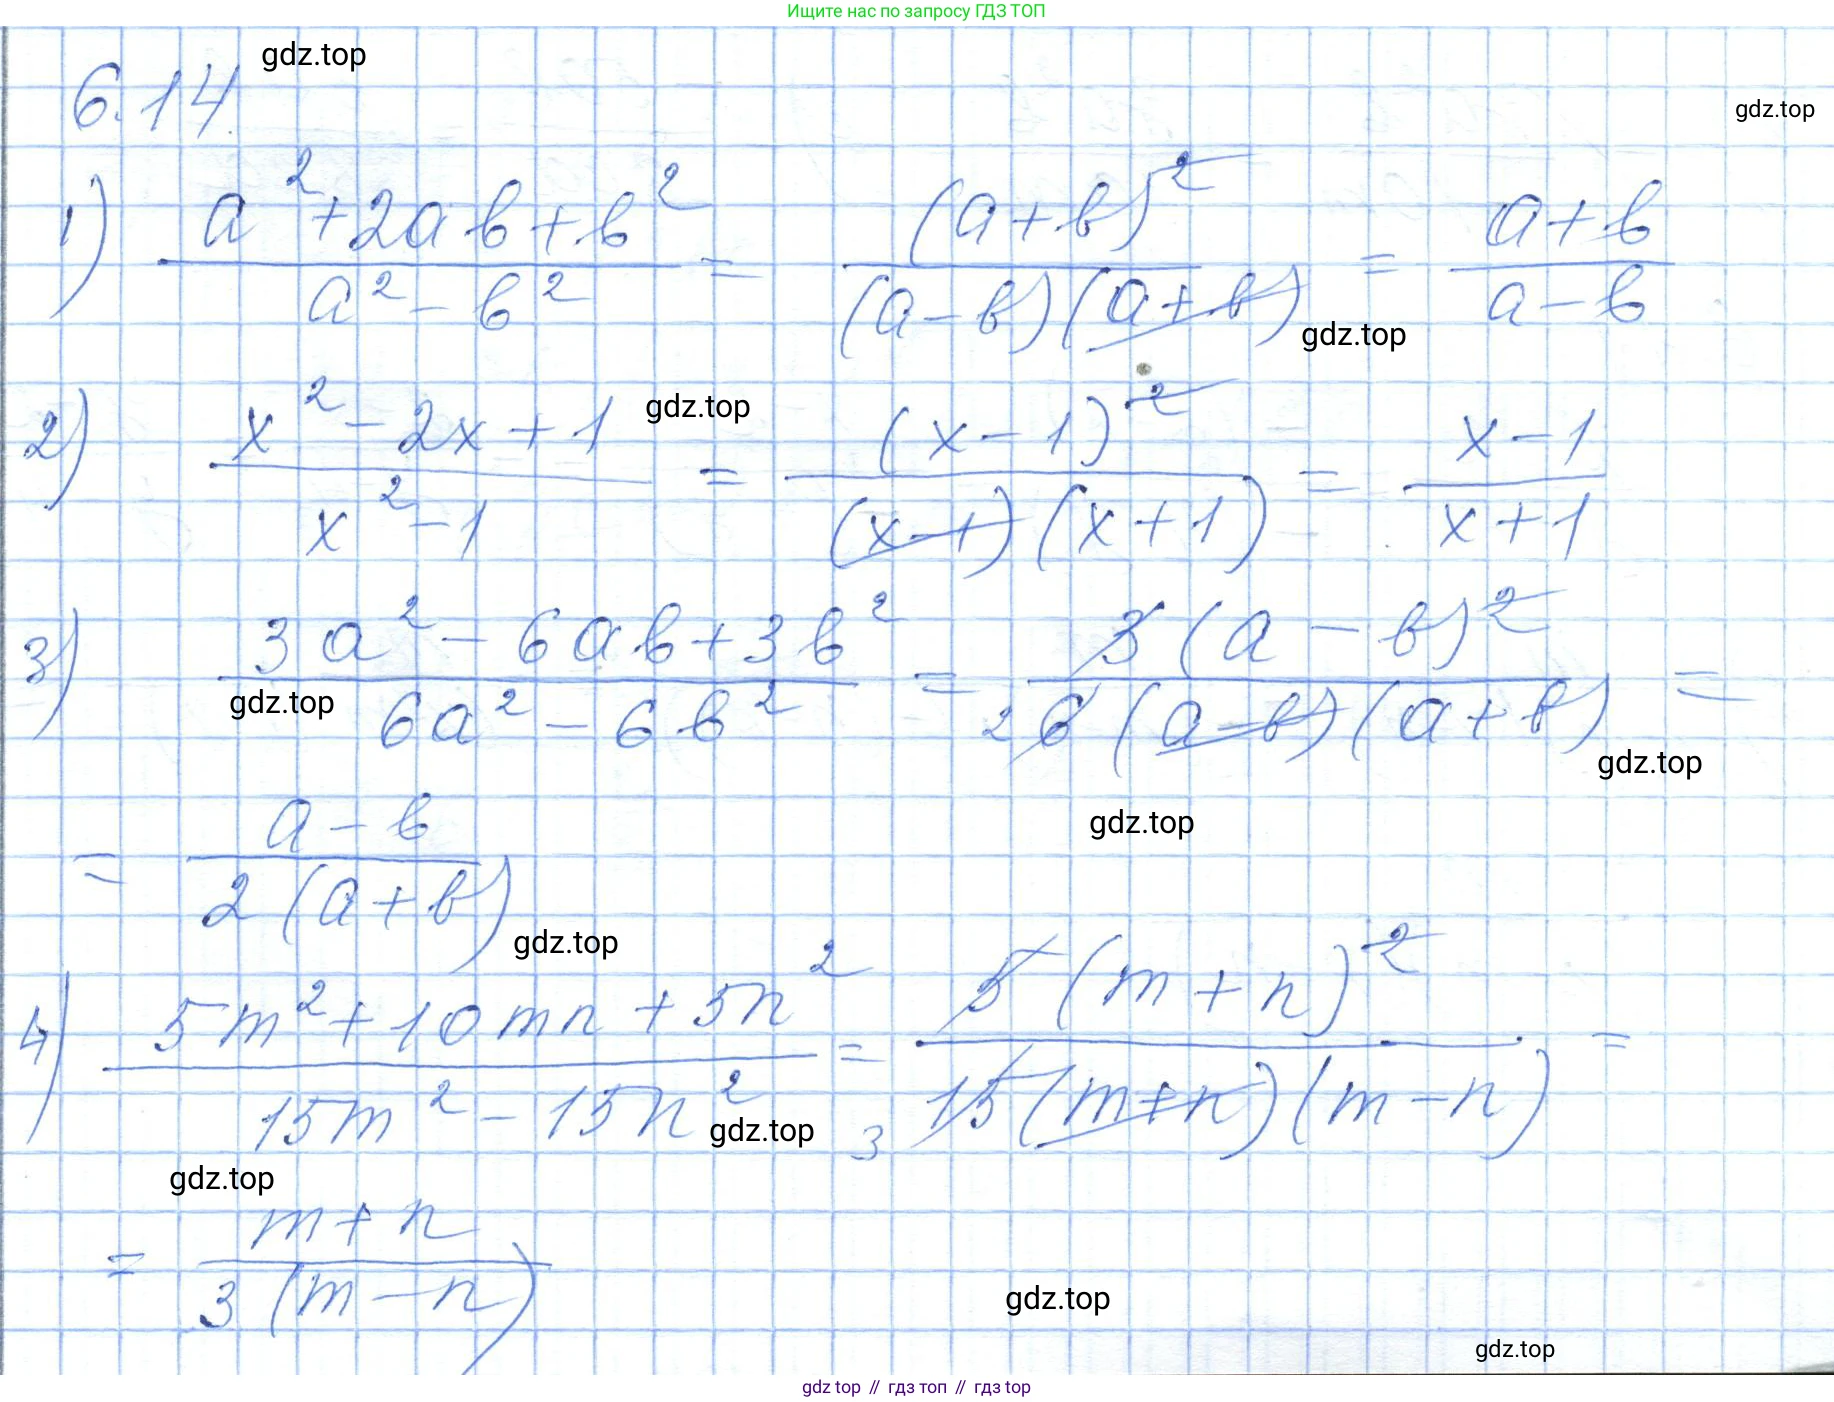 Ищите нас по запросу ГДЗ ТОП
gdz.top
6.14.
gdz.top
1) (a² + 2ab + b²)/(a² - b²) = (a+b)²/((a-b)(a+b)) = (a+b)/(a-b)
gdz.top
gdz.top
2) (x² - 2x + 1)/(x² - 1) = (x-1)²/((x-1)(x+1)) = (x-1)/(x+1)
3) (3a² - 6ab + 3b²)/(6a² - 6b²) = 3(a-b)²/(2 6(a-b)(a+b)) =
gdz.top
gdz.top
gdz.top
= (a-b)/(2(a+b))
gdz.top
4) (5m² + 10mn + 5n²)/(15m² - 15n²) = 5(m+n)²/(3 15(m+n)(m-n)) =
gdz.top
gdz.top
= (m+n)/(3(m-n))
gdz.top
gdz.top
gdz top // гдз топ // гдз top